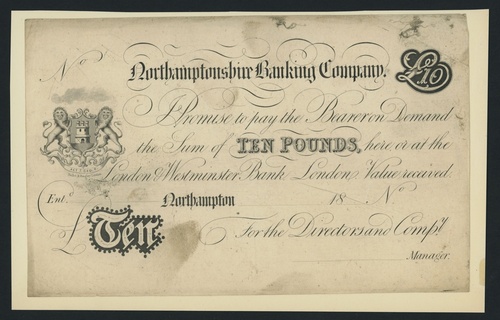 No
Northamptonshire Banking Company.
£10
I Promise to pay the Bearer on Demand
the Sum of TEN POUNDS, here or at the
London & Westminster Bank London. Value received.
Ent.d Northampton 18 No
£ Ten
For the Directors and Compy.
Manager.